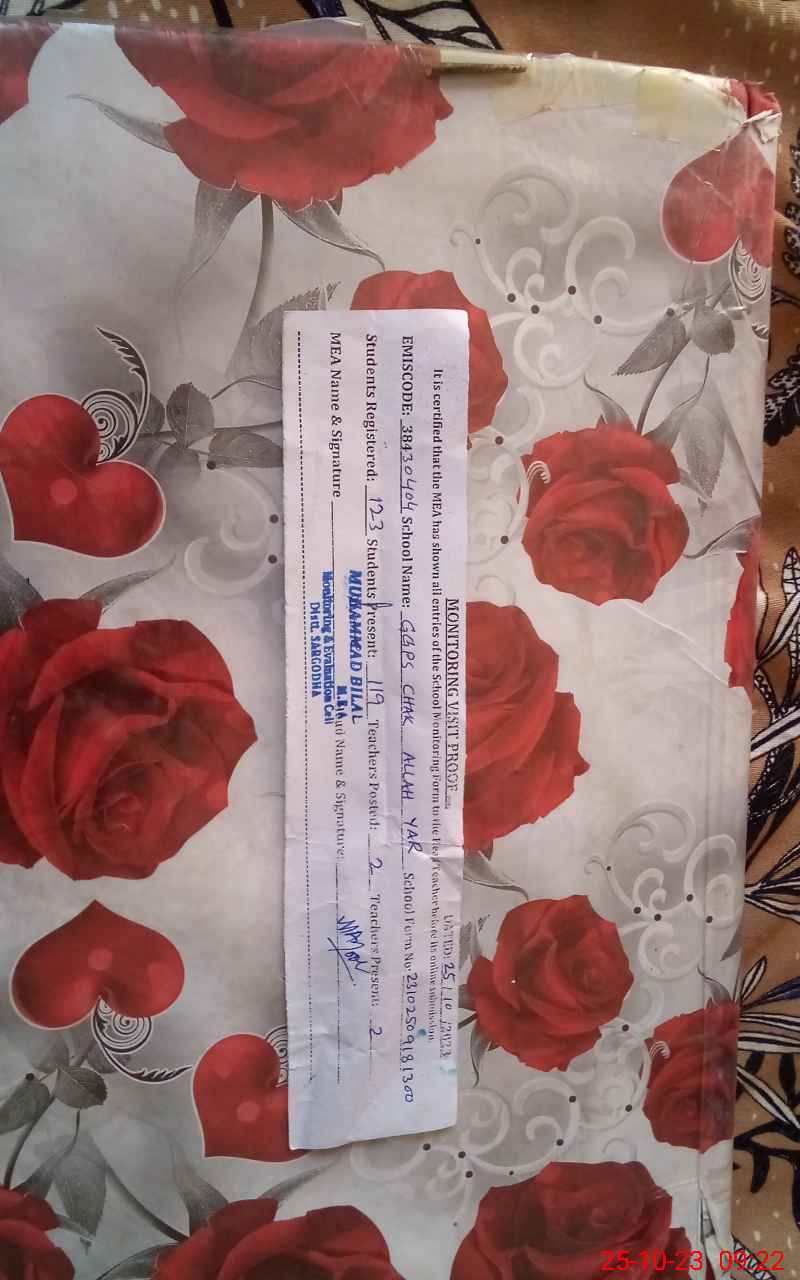 MONITORING VISIT PROOF
DATED: 25/10/2023
It is certified that the MEA has shown all entries of the School Monitoring Form to the Head Teacher before its online submission.
EMISCODE: 38430404 School Name: GGPS CHAK ALLAH YAR School Form No: 23102509181300
Students Registered: 123 Students Present: 119 Teachers Posted: 2 Teachers Present: 2
MEA Name & Signature Head Name & Signature:
MUHAMMAD BILAL
M.E.A
Monitoring & Evaluation Cell
Distt. SARGODHA
25-10-23 09:22